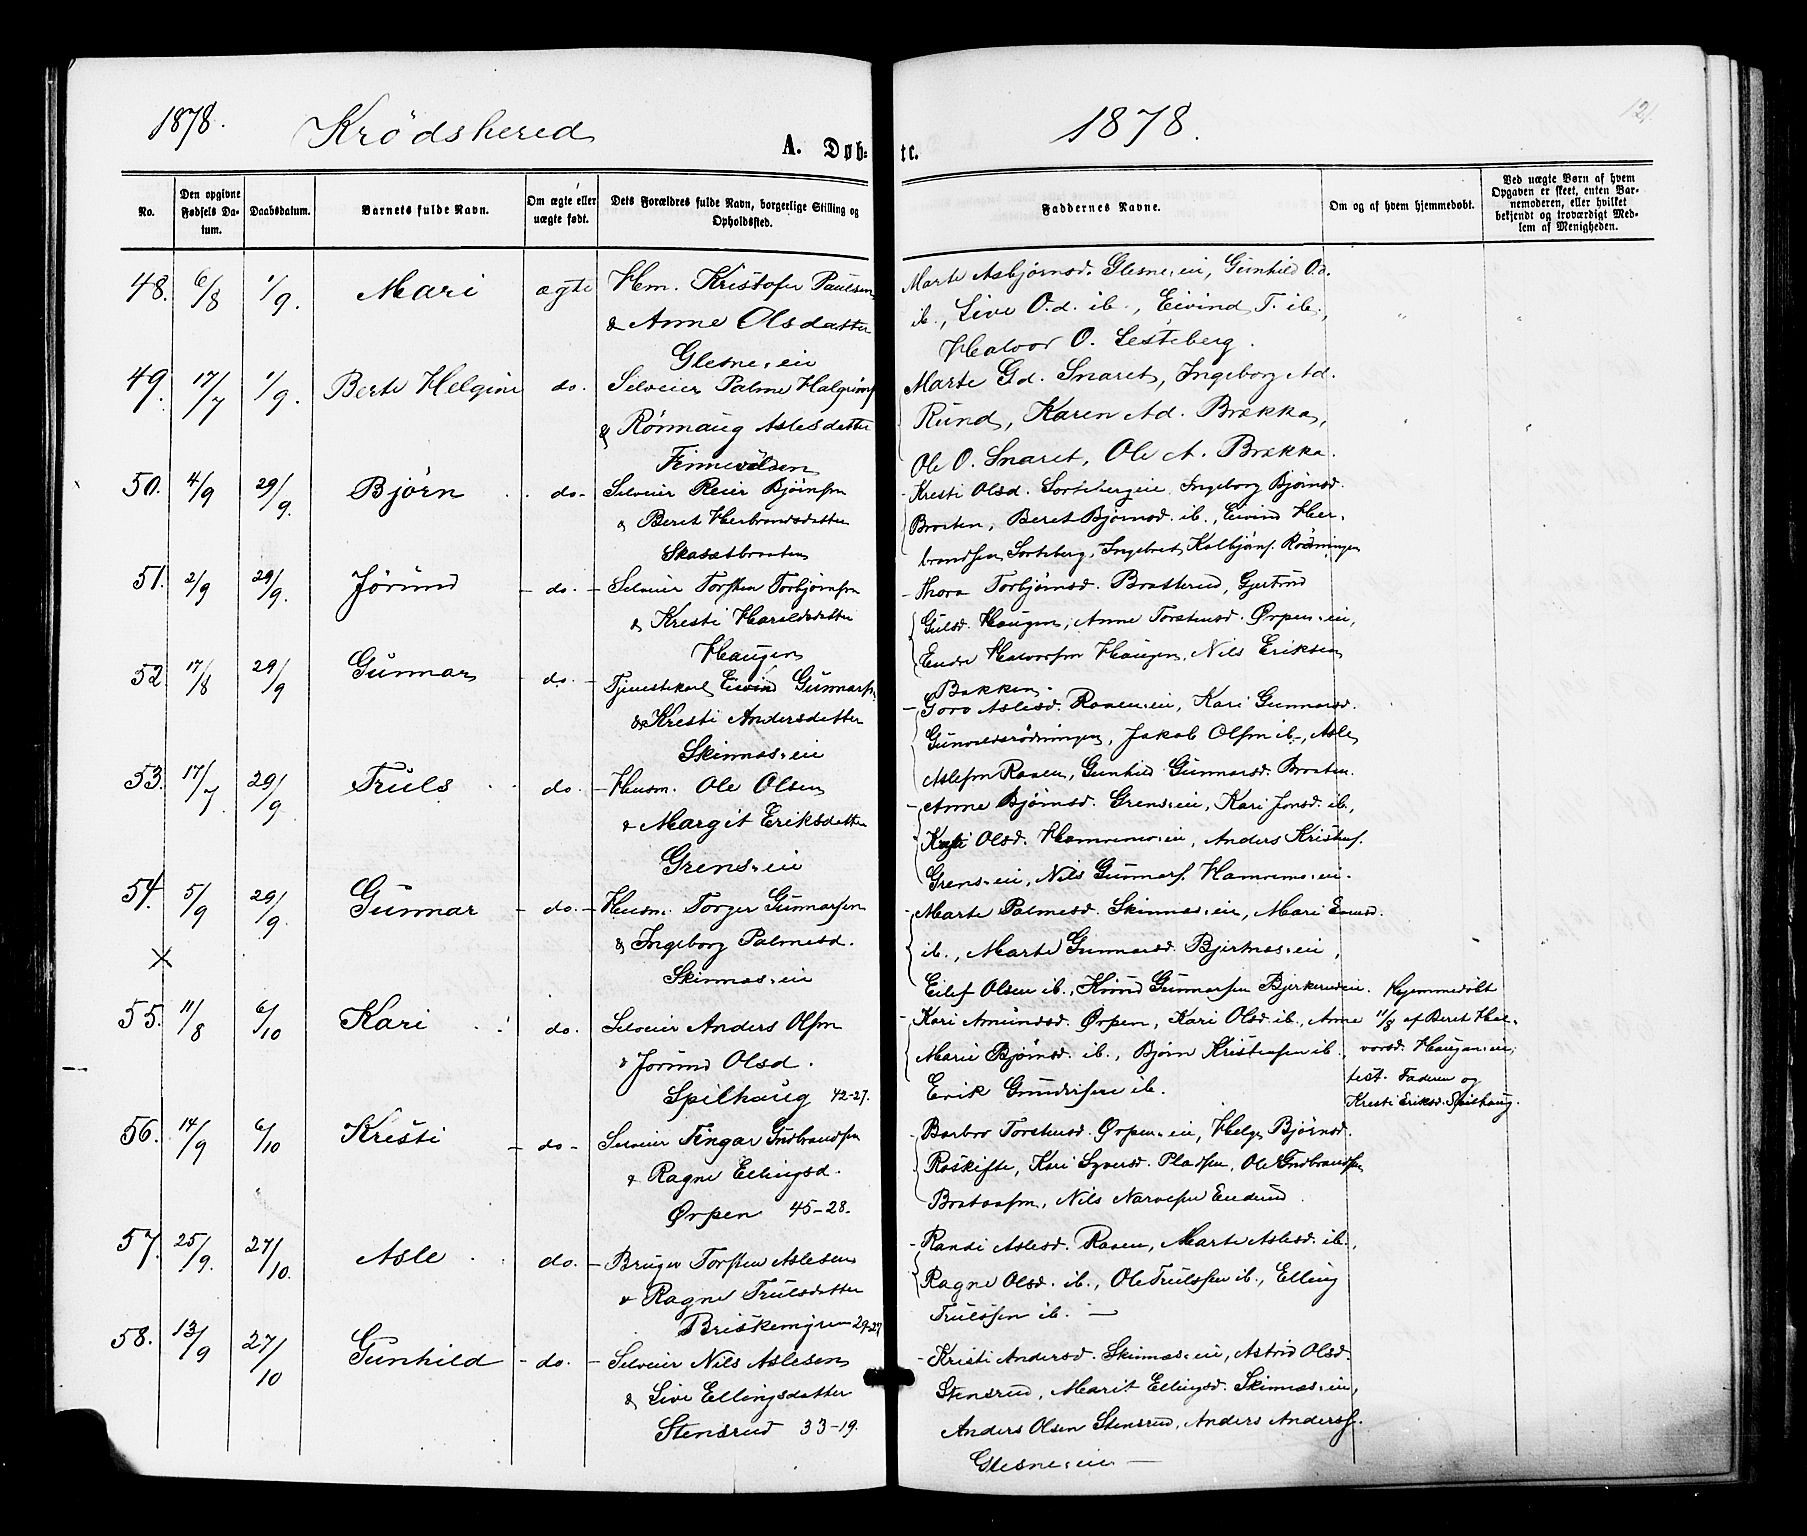 1878. Krødshered
A. Døb-
te.
1878.
121
No.
Den opgivne Fødsels Da-tum.
Daabsdatum.
Barnets fulde Navn.
Om ægte eller uægte født.
Dets Forældres fulde Navn, borgerlige Stilling og Opholdssted.
Faddernes Navne.
Om og af hvem hjemmedøbt.
Ved uægte Børn af hvem Opgaven er skeet, enten Bar-nemoderen, eller hvilket bekjendt og troværdigt Med-lem af Menigheden.
48. 6/8 1/9. Mari ægte Hm. Kristofer Paulsen
& Anne Olsdatter
Glesne-eie
Marte Asbjørnsd. Glesne-eie, Gunhild O.d.
ib., Live O.d. ib., Eivind T. ib.,
Halvor O. Lesteberg.
49. 17/7 1/9. Berte Helgine do. Selveier Palme Halgrims
& Rønnaug Aslesdatter
Finnevolden
Marte Gd. Snaret, Ingeborg Ad.
Rund, Karen Ad. Brække,
Ole O. Snaret, Ole A. Brække.
50. 4/9 29/9. Bjørn do- Selveier Reier Bjørnsen
& Beret Herbrandsdatter
Skasetbraaten
Kresti Olsd. Sortebergeie, Ingeborg Bjørnsd.
Braaten, Beret Bjørnsd. ib., Eivind Her-
brandsen Sorteberg, Ingebret Kolbjørns. Rødningen
51. 2/9 29/9. Jørund do. Selveier Torsten Torbjørnsen
& Kresti Haraldsdatter
Haugen
Thora Torbjørnsd. Bratterud, Gjertrud
Gulsd. Haugen, Anne Torstensd. Ørpen-eie,
Endre Halvorsen Haugen, Nils Eriksen
Bakken.
52 17/8 29/9 Gunnar do. Tjenestekarl Eivind Gunnars.
& Kresti Andersdatter
Skinnes-eie
Goro Aslesd. Raaen-eie, Kari Gunnarsd.
Gunvaldsrødningen, Jakob Olsen ib., Asle
Aslesen Raaen, Gunhild Gunnarsd. Braaten.
53. 17/7. 29/9 Truls do. Husm. Ole Olsen
& Margit Eriksdatter
Grens-eie
Anne Bjørnsd. Grens-eie, Kari Jonsd. ib.,
Olsd. Hamrems-eie, Anders Kristens.
Grens-eie, Nils Gunnars. Hamrems-eie.
54. 5/9 29/9. Gunnar do. Husm. Torger Gunnarsen
& Ingeborg Palmesd.
Skinnes-eie
Marte Palmesd. Skinnes-eie, Mari
ib., Marte Gunnarsd. Bjertnes-eie,
Eilef Olsen ib., Gunnarsen Bjerkerudeie.
X
55. 11/8 6/10 Kari do. Selveier Anders Olsen
& Jørund Olsd.
Spilhaug 42-27.
Kari Amundsd. Ørpen, Kari Olsd. ib., Anne
Marie Bjørnsd. ib., Bjørn Kristensen ib.,
Erik Gundersen ib.
Hjemmedøbt
11/8 af Beret Hal-
vorsd. Haugan-eie,
test. Faderen og
Kresti Eriksd. Spilhaug.
56. 14/9 6/10 Kresti do- Selveier Fingar Gudbrandsen
& Ragne Ellingsd.
Ørpen 45-28.
Barbro Torstensd. Ørpen-eie, Helge Bjørnsd.
Roskifte, Kari Syversd. Pladsen, Ole Gudbrandsen
Brataasen, Nils Narvesen Enderud.
57. 25/9. 27/10. Asle do. Bruger Torsten Aslesen
& Ragne Trulsdatter
Briskemyren 29-27
Randi Aslesd. Raaen, Marte Aslesd. ib.,
Ragne Olsd. ib., Ole Trulssen ib., Elling
Trulssen ib. —
58. 13/9 27/10 Gunhild do. Selveier Nils Aslesen
& Live Ellingsdatter
Stensrud 33-19.
Kristi Andersd. Skinnes-eie, Astrid Olsd.
Stensrud, Marit Ellingsd. Skinnes-eie,
Anders Olsen Stensrud, Anders Anders.
Glesne-eie —